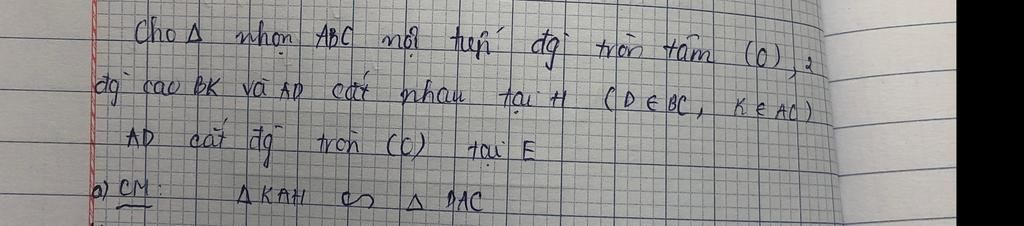 Cho Δ nhọn ABC nội tiếp đg tròn tâm (O), 2
đg cao BK và AD cắt nhau tại H (D ∈ BC, K ∈ AC)
AD cắt đg tròn (O) tại E
a) CM: Δ KAH ∽ Δ DAC